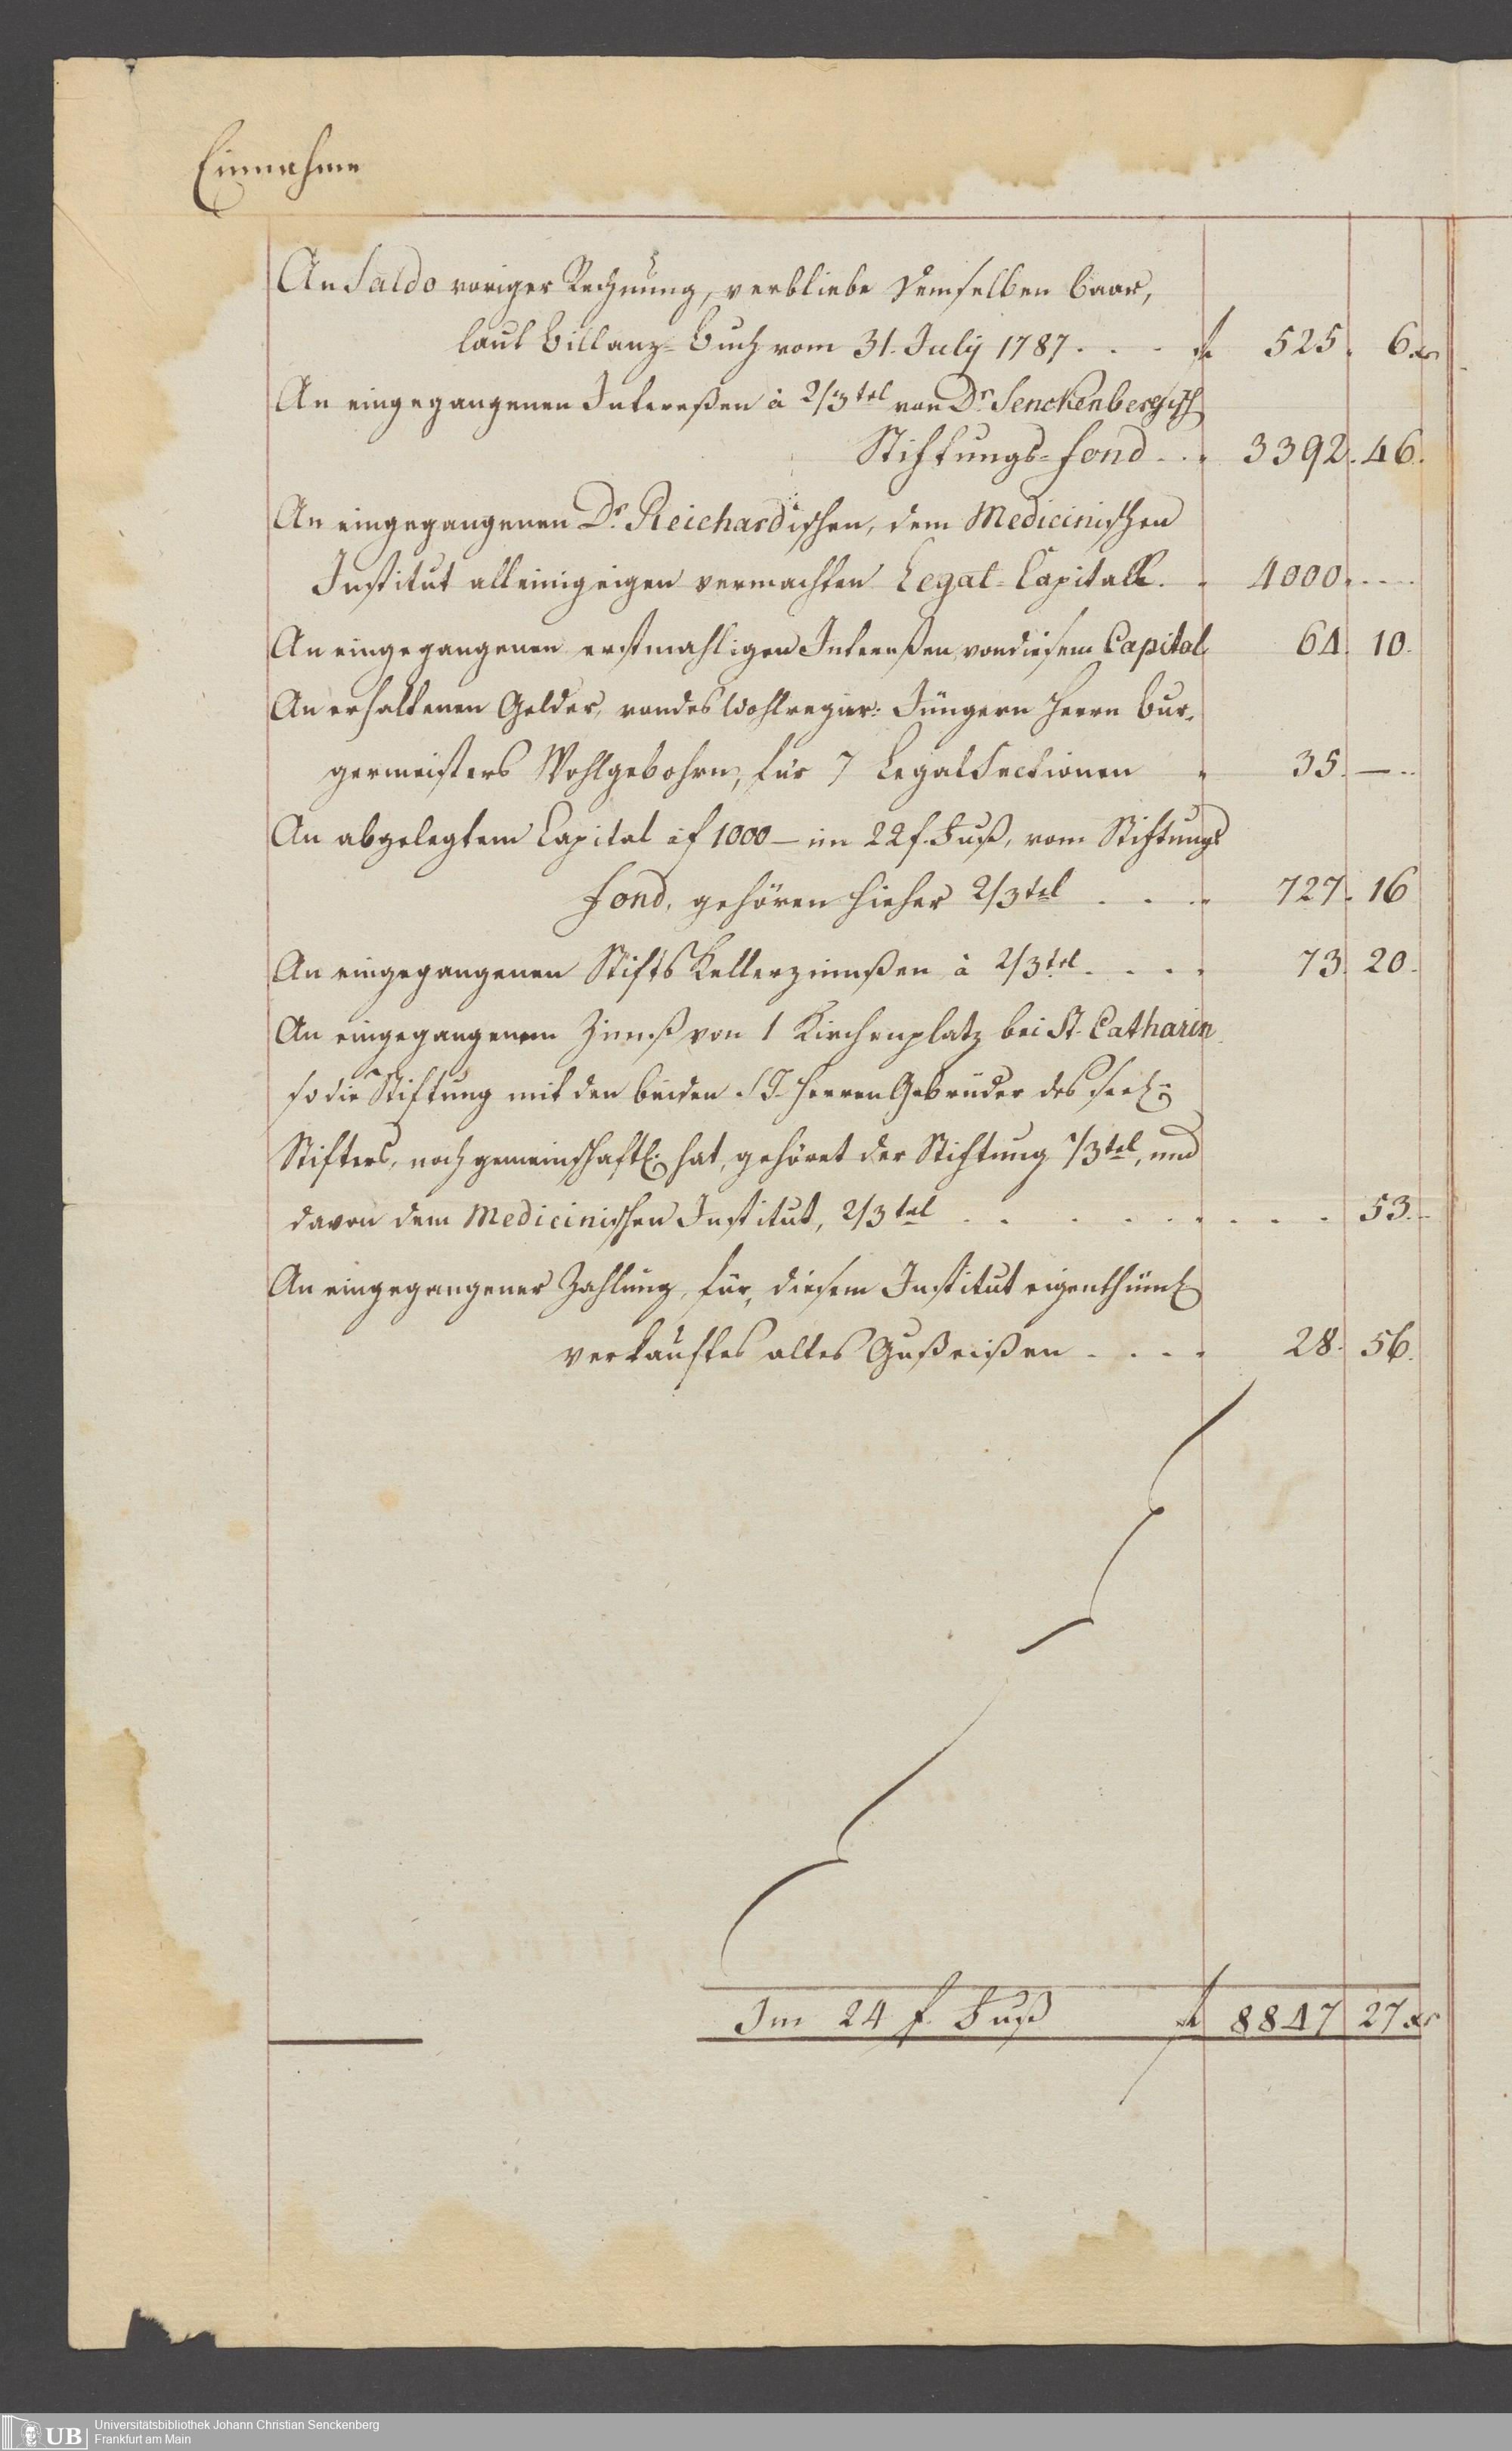 Einnahme
An Saldo voriger Rechnung, verbliebe demselben baar,
laut Billanz-Buch vom 31. July 1787 . . . f 525. 6 xr
An eingegangenen Intereßen à 2/3tel von Dr. Senckenbergisch
Stiftungs-fond . . " 3392. 46.
An eingegangenen Dr. Reichardischen, dem Medicinischen
Institut alleinig eigen vermachten Legat-Capital . " 4000. . . .
An eingegangenen erstmahligen Intereßen, von diesem Capital 64. 10.
An erhaltenen Gelder, von des Wohlregier: Jüngern Herrn Bur-
germeisters Wohlgebohrn, für 7 Legal Sectionen " 35. — . .
An abgelegtem Capital à f 1000 — im 22 f. Fuß, vom Stiftungs
fond, gehören hieher 2/3tel . . . " 727. 16
An eingegangenen Stifts Kellerzinnßen à 2/3tel . . . " 73. 20.
An eingegangenem Zinnß von 1 Kirchenplatz bei St. Catharin.
so die Stiftung mit den beiden Herren Gebrüder des seel:
Stifters, noch gemeinschaftl: hat, gehöret der Stiftung 1/3tel, und
davon dem Medicinischen Institut, 2/3tel . . . . . . . . . 53.
An eingegangener Zahlung, für, diesem Institut eigenthüml
verkauftes altes Gußeißen . . . " 28. 56.
Im 24 f. Fuß f 8847 27 xr
UB
Universitätsbibliothek Johann Christian Senckenberg
Frankfurt am Main